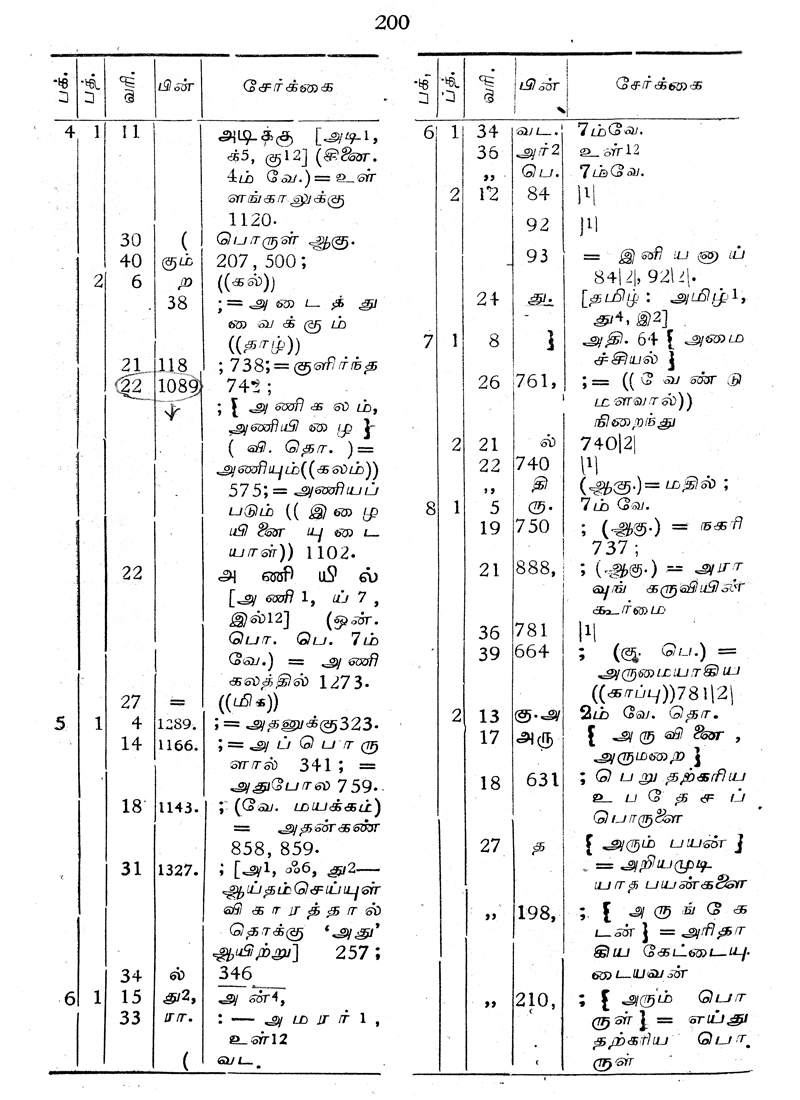 200
பக். பத். வரி. பின் சேர்க்கை
4 1 11 அடிக்கு [அடி1,
க்5, கு12] (சினை.
4ம் வே.)=உள்
ளங்காலுக்கு
1120.
30 ( பொருள் ஆகு.
40 கும் 207, 500;
2 6 ற ((கல்))
38 ;=அடைத்து
வைக்கும்
((தாழ்))
21 118 ; 738;=குளிர்ந்த
22 1089 742;
;{ அணிகலம்,
அணியிழை }
( வி. தொ. )=
அணியும்((கலம்))
575;=அணியப்
படும் (( இழை
யினை யுடை
யாள்)) 1102.
22 அணியில்
[அணி1, ய்7,
இல்12] (ஒன்.
பொ. பெ. 7ம்
வே.) = அணி
கலத்தில் 1273.
27 = ((மிக))
5 1 4 1289. ;=அதனுக்கு323.
14 1166. ;=அப்பொரு
ளால் 341; =
அதுபோல 759.
18 1143. ; (வே. மயக்கம்)
= அதன்கண்
858, 859.
31 1327. ; [அ1, ஃ6, து2—
ஆய்தம்செய்யுள்
விகாரத்தால்
தொக்கு ‘அது’
ஆயிற்று] 257;
34 ல் 346
6 1 15 து2, அன்4,
33 ரா. :—அமரர்1,
உள்12
( வட.
பக், ப்த். வரி. பின் சேர்க்கை
6 1 34 வட. 7ம்வே.
36 அர்2 உள்12
,, பெ. 7ம்வே.
2 12 84 |1|
92 |1|
93 = இனியனாய்
84|2|, 92|2|.
24 து. [தமிழ்: அமிழ்1,
து4, இ2]
7 1 8 } அதி. 64 { அமை
ச்சியல் }
26 761, ;= ((வேண்டு
மளவால்))
நிறைந்து
2 21 ல் 740|2|
22 740 |1|
,, தி (ஆகு.)=மதில்;
8 1 5 ரு. 7ம் வே.
19 750 ; (ஆகு.) = நகரி
737;
21 888, ; (ஆகு.) = அரா
வுங் கருவியின்
கூர்மை
36 781 |1|
39 664 ; (கு. பெ.) =
அருமையாகிய
((காப்பு))781|2|
2 13 கு.அ 2ம் வே. தொ.
17 அரு { அருவினை,
அருமறை }
18 631 ; பெறுதற்கரிய
உபதேசப்
பொருளை
27 த { அரும் பயன் }
=அறியமுடி
யாதபயன்களை
,, 198, ; { அருங்கே
டன் } =அரிதா
கிய கேட்டையு
டையவன்
,, 210, ; { அரும் பொ
ருள் } = எய்து
தற்கரிய பொ
ருள்